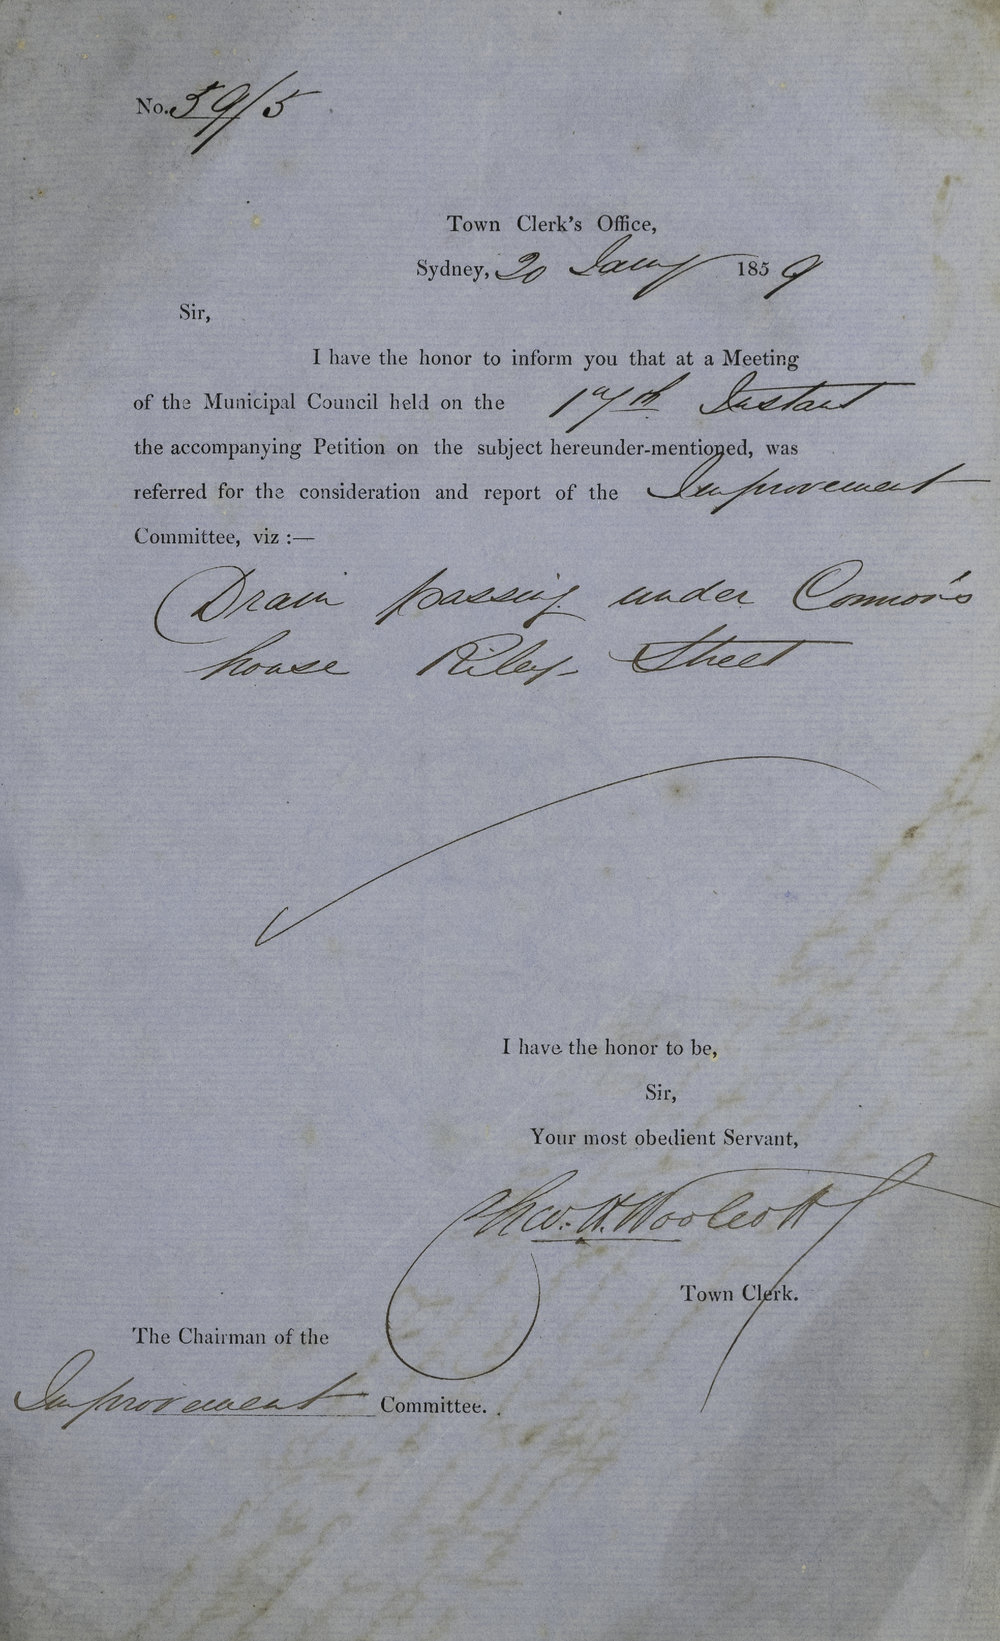 No. 59/5
Town Clerk's Office,
Sydney, 20 Jany 1859
Sir,
I have the honor to inform you that at a Meeting
of the Municipal Council held on the 17th Instant
the accompanying Petition on the subject hereunder-mentioned, was
referred for the consideration and report of the Improvement
Committee, viz :—
Drain passing under Connor's
house Riley Street
I have the honor to be,
Sir,
Your most obedient Servant,
Chas. H. Woolcott
Town Clerk.
The Chairman of the
Improvement Committee.